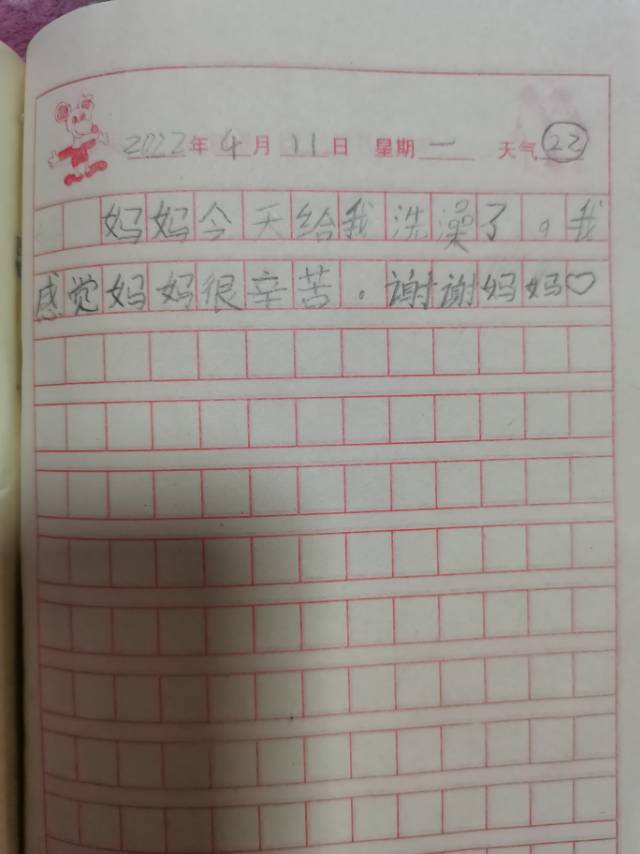 2022年4月11日 星期一 天气22
妈妈今天给我洗澡了。我
感觉妈妈很辛苦。谢谢妈妈♡